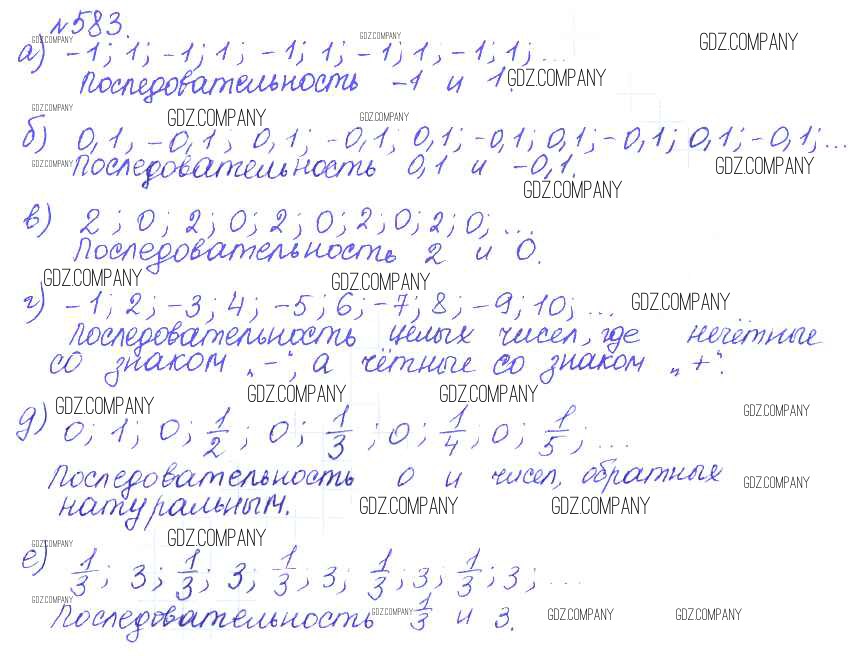 №583.
GDZ.COMPANY GDZ.COMPANY GDZ.COMPANY
а) -1; 1; -1; 1; -1; 1; -1; 1; -1; 1; ...
Последовательность -1 и 1. GDZ.COMPANY
GDZ.COMPANY GDZ.COMPANY GDZ.COMPANY
б) 0,1; -0,1; 0,1; -0,1; 0,1; -0,1; 0,1; -0,1; 0,1; -0,1; ...
GDZ.COMPANY Последовательность 0,1 и -0,1. GDZ.COMPANY
GDZ.COMPANY
в) 2; 0; 2; 0; 2; 0; 2; 0; 2; 0; ...
Последовательность 2 и 0.
GDZ.COMPANY GDZ.COMPANY
г) -1; 2; -3; 4; -5; 6; -7; 8; -9; 10; ... GDZ.COMPANY
Последовательность целых чисел, где нечётные
со знаком „-“, а чётные со знаком „+“.
GDZ.COMPANY GDZ.COMPANY GDZ.COMPANY GDZ.COMPANY
д) 0; 1; 0; 1/2; 0; 1/3; 0; 1/4; 0; 1/5; ...
Последовательность 0 и чисел, обратных GDZ.COMPANY
натуральным. GDZ.COMPANY GDZ.COMPANY
GDZ.COMPANY GDZ.COMPANY
е) 1/3; 3; 1/3; 3; 1/3; 3; 1/3; 3; 1/3; 3; ...
GDZ.COMPANY
Последовательность GDZ.COMPANY 1/3 и 3. GDZ.COMPANY GDZ.COMPANY